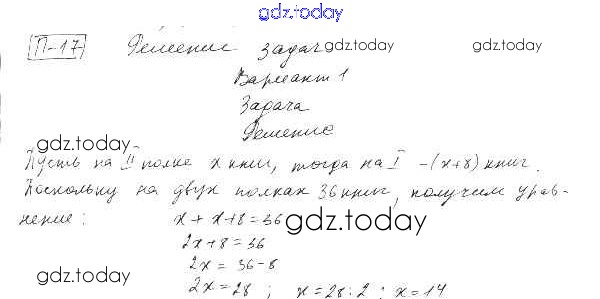 gdz.today
П-17 Решение задач gdz.today gdz.today
Вариант 1
Задача
gdz.today Решение
Пусть на II полке x книг, тогда на I - (x+8) книг.
Поскольку на двух полках 36 книг, получим урав-
нение: x + x+8 = 36
gdz.today
2x+8 = 36
2x = 36-8
gdz.today 2x = 28 ; x = 28:2 ; x = 14